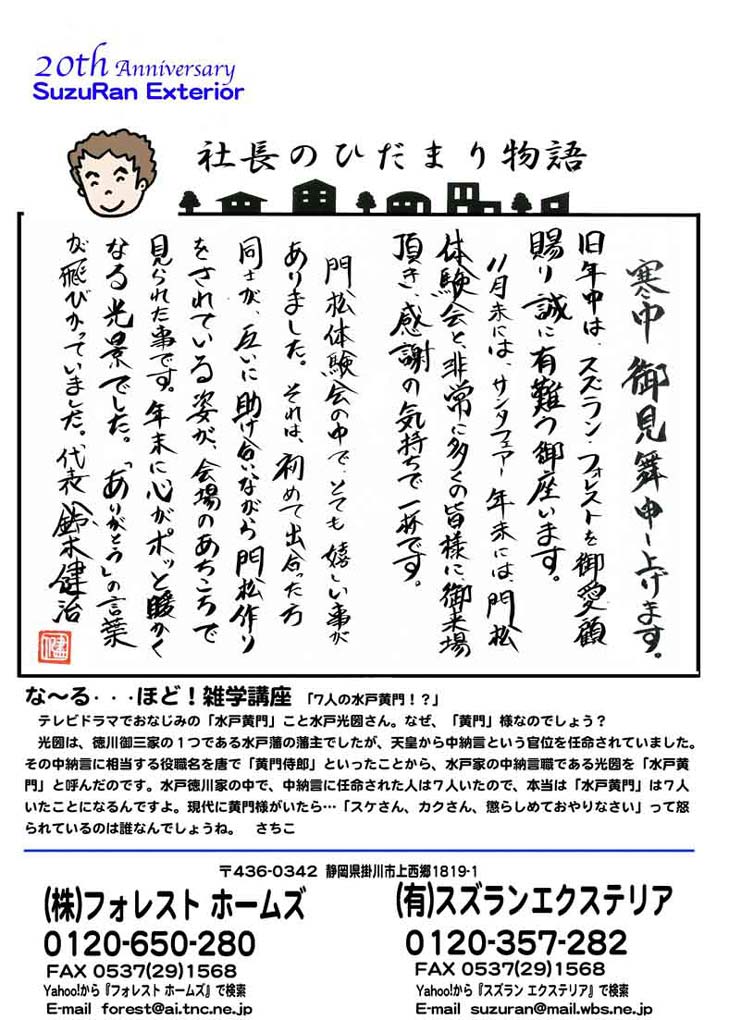 20th Anniversary
SuzuRan Exterior
社長のひだまり物語
寒中 御見舞申し上げます。
旧年中は、スズラン・フォレストを御愛顧
賜り誠に有難う御座います。
11月末には、サンタフェアー 年末には、門松
体験会と、非常に多くの皆様に、御来場
頂き、感謝の気持ちで一杯です。
門松体験会の中で、とても嬉しい事が
ありました。それは、初めて出合った方
同士が、互いに助け合いながら門松作り
をされている姿が、会場のあちこちで
見られた事です。年末に心がポッと暖かく
なる光景でした。「ありがとう」の言葉
が飛びかっていました。代表 鈴木健治
な～る・・・ほど！雑学講座 「7人の水戸黄門！？」
テレビドラマでおなじみの「水戸黄門」こと水戸光圀さん。なぜ、「黄門」様なのでしょう？
光圀は、徳川御三家の１つである水戸藩の藩主でしたが、天皇から中納言という官位を任命されていました。
その中納言に相当する役職名を唐で「黄門侍郎」といったことから、水戸家の中納言職である光圀を「水戸黄
門」と呼んだのです。水戸徳川家の中で、中納言に任命された人は７人いたので、本当は「水戸黄門」は７人
いたことになるんですよ。現代に黄門様がいたら…「スケさん、カクさん、懲らしめておやりなさい」って怒
られているのは誰なんでしょうね。 さちこ
〒436-0342 静岡県掛川市上西郷1819-1
(株)フォレスト ホームズ
0120-650-280
FAX 0537(29)1568
Yahoo!から『フォレスト ホームズ』で検索
E-mail forest@ai.tnc.ne.jp
(有)スズランエクステリア
0120-357-282
FAX 0537(29)1568
Yahoo!から『スズラン エクステリア』で検索
E-mail suzuran@mail.wbs.ne.jp